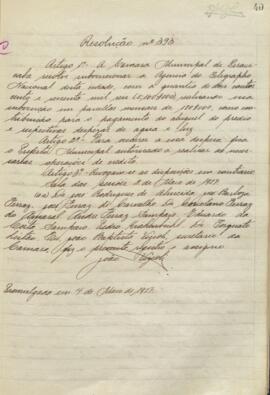 40
Resolução nº 393
Artigo 1º A Camara Municipal de Piraci-
caba resolve subvencionar a Agencia do Telegrapho
Nacional desta cidade, com a quantia de dois contos
cento e sessenta mil reis (2.160$000), retirando essa
subvenção em parcellas mensaes de 180$000, como con-
tribuição para o pagamento do aluguel do predio
e respectivas despezas de agua e luz
Artigo 2º Para ocorrer a essa despeza fica
o Prefeito Municipal autorizado a realizar as neces-
sarias operações de credito.
Artigo 3º Revogam-se as disposições em contrario
Sala das sessões 2 de Maio de 1927.
(aa) José Rodrigues de Almeida,
Ferraz, José Ferraz de Carvalho, Dr. Coriolano Ferraz
do Amaral, André Ferraz Sampaio, Eduardo da
Costa Sampaio, Pedro Krahenbuhl, Dr. Torquato
Leitão. Eu, João Baptista Vizioli, secretario da
Camara, fiz o presente registro e assigno
João Vizioli
Promulgada em 4 de Maio de 1927.